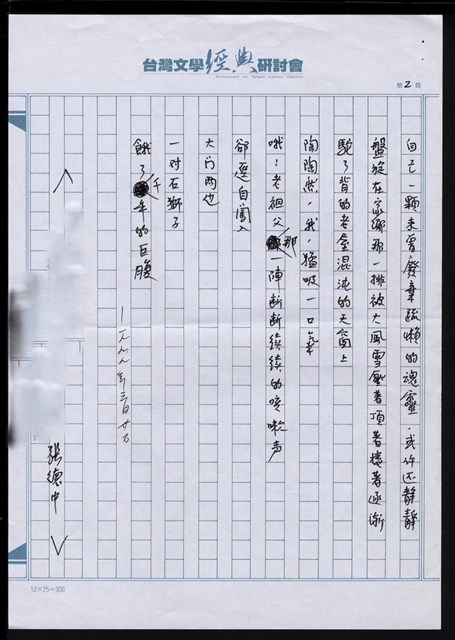 台灣文學經典研討會
第2頁
自己一顆未曾廢棄疏懶的魂靈，或許還靜靜
盤旋在家鄉那一排被大風雪壓著頂著摟著逐漸
駝了背的老屋混沌的天窗上
陶陶然，我，猛吸一口氣
哦！老祖父那一陣斷斷續續的咳嗽声
卻逕自闖入
大门两边
一对石獅子
餓了千年的巨腹
一九九九年三月廿日
張德中
12×25=300